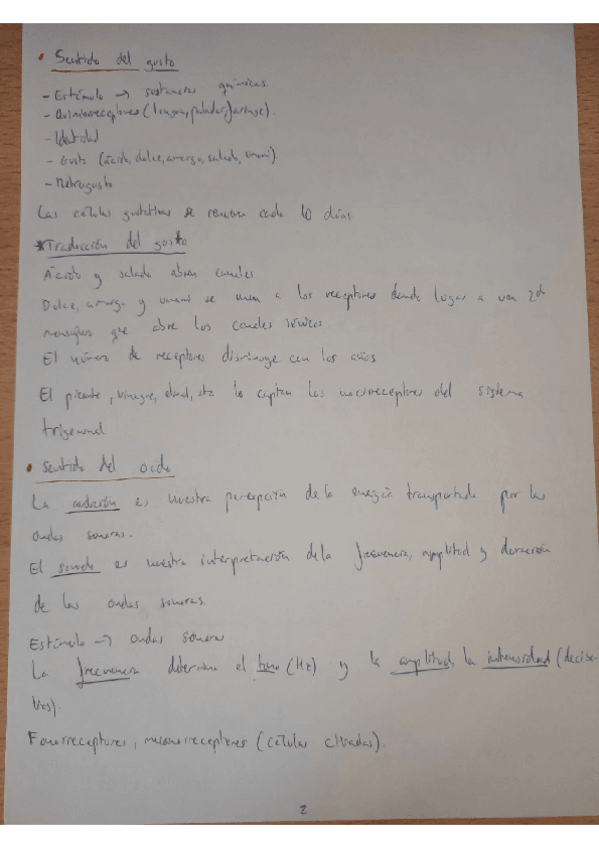 • Sentido del gusto
- Estímulo → sustancias químicas.
- Quimiorreceptores (lengua, paladar, faringe).
- Identidad
- Gusto (ácido, dulce, amargo, salado, umami)
- Retrogusto
Las células gustativas se renuevan cada 10 días
*Traducción del gusto
Ácido y salado abren canales
Dulce, amargo y umami se unen a los receptores dando lugar a un 2do
mensajero que abre los canales iónicos
El número de receptores disminuye con los años
El picante, vinagre, etc lo captan los nocireceptores del sistema
trigeminal
• Sentido del oido
La audición es nuestra percepción de la energía transportada por las
ondas sonoras.
El sonido es nuestra interpretación de la frecuencia, amplitud y duración
de las ondas sonoras.
Estímulo → ondas sonoras
La frecuencia determina el tono (Hz) y la amplitud, la intensidad (decibe-
lios).
Fonorreceptores, mecanorreceptores (células ciliadas).
2